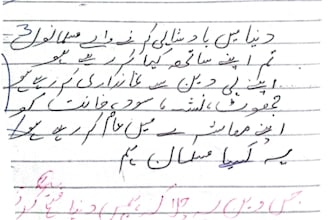 دنیا میں بادشاہی کرنے والے مسلمانوں
تم اپنے ساتھ کیا کر رہے ہو
اپنے ہی دین سے غداری کر رہے ہو
جھوٹ، نشہ، سود، خیانت کو
اپنے معاشرے میں عام کر رہے ہو
یہ کیسا مسلمان ہے
جس دین نے دنیا